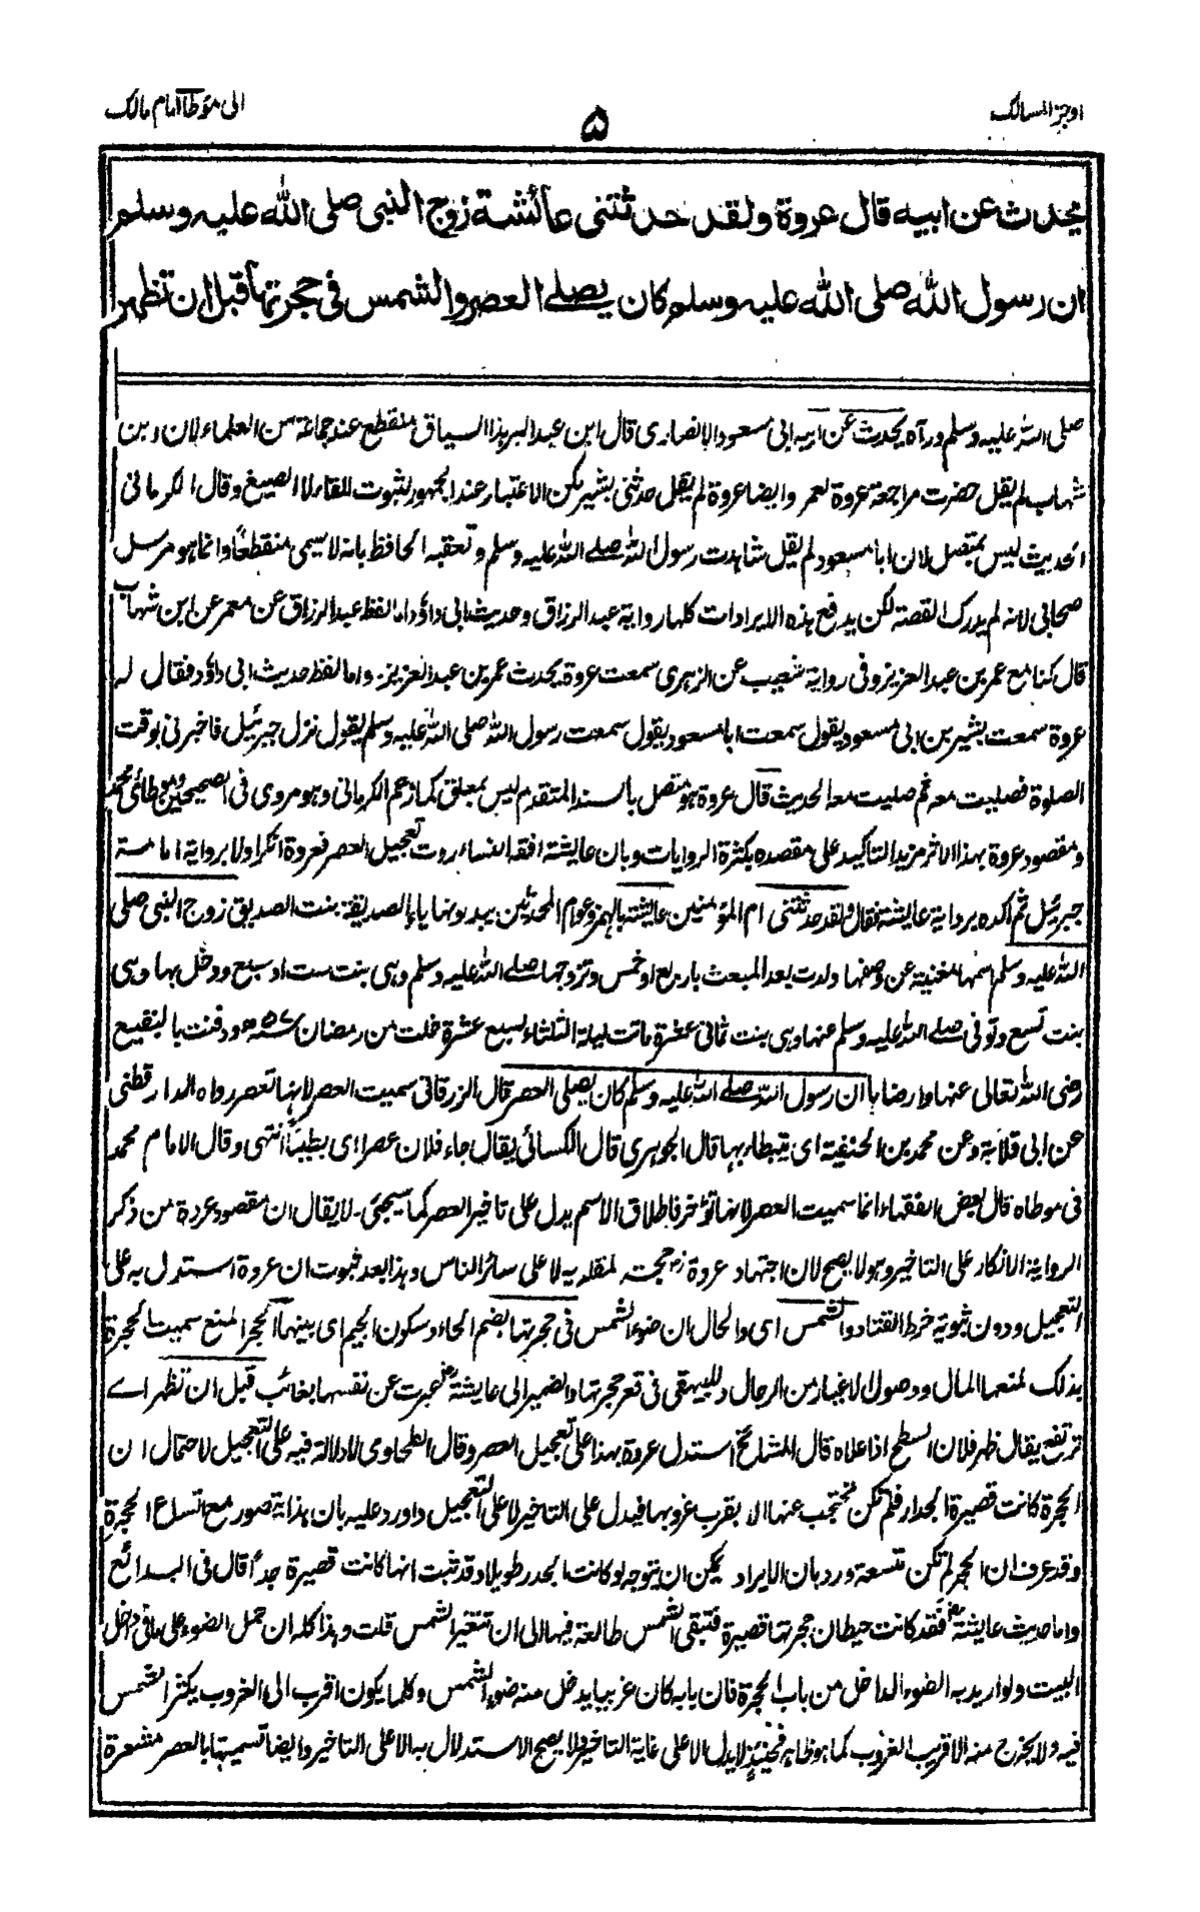 اوجز المسالك
۵
الی مؤطا امام مالك
يحدث عن ابيه قال عروة ولقد حدثتنى عائشة زوج النبى صلى الله عليه وسلم
ان رسول الله صلى الله عليه وسلم كان يصلے العصر والشمس فى حجرتها قبل ان تظهر
صلى الله عليه وسلم ورآه يحدث عن ابيه ابى مسعود الانصارى قال ابن عبد البر هذا السياق منقطع عند جماعة من العلماء لان ابن
شهاب لم يقل حضرت مراجعة عروة لعمر وايضا عروة لم يقل حدثنى بشير لكن الاعتبار عند الجمهور لثبوت اللقاء لا الصيغ وقال الكرمانى
الحديث ليس بمتصل لان ابا مسعود لم يقل شاهدت رسول الله صلے الله عليه وسلم وتعقبه الحافظ بانه لا يسمى منقطعاً وانما هو مرسل
صحابى لانه لم يدرك القصة لكن يدفع هذه الايرادات كلها رواية عبد الرزاق وحديث ابى داؤد اما لفظ عبد الرزاق عن معمر عن ابن شهاب
قال كنا مع عمر بن عبد العزيز وفى رواية شعيب عن الزهرى سمعت عروة يحدث عمر بن عبد العزيز واما لفظ حديث ابى داؤد فقال له
عروة سمعت بشير بن ابى مسعود يقول سمعت ابا مسعود يقول سمعت رسول الله صلى الله عليه وسلم يقول نزل جبرئيل فاخبرنى بوقت
الصلوة فصليت معه ثم صليت معه الحديث قال عروة هو متصل بالسند المتقدم ليس بمعلق كما زعم الكرمانى وهو مروى فى الصحيحين وموطائ محمد
ومقصود عروة بهذا الاثر مزيد التاكيد على مقصده بكثرة الروايات وبان عايشة افقه النساء روت تعجيل العصر فعروة انكر اولا برواية امامة
جبرئيل ثم اكده برواية عايشة فقال ولقد حدثتنى ام المؤمنين عايشة بالهمز وعوام المحدثين يبدلونها ياء الصديقة بنت الصديق زوج النبى صلى
الله عليه وسلم اسمها مغنية عن وصفها ولدت بعد المبعث باربع او خمس وتزوجها صلے الله عليه وسلم وهى بنت ست او سبع ودخل بها وهى
بنت تسع وتوفى صلے الله عليه وسلم عنها وهى بنت ثمانى عشرة ماتت ليلة الثلثاء لسبع عشرة خلت من رمضان ۵۷ھ ودفنت بالبقيع
رضى الله تعالى عنها وارضاها ان رسول الله صلے الله عليه وسلم كان يصلى العصر قال الزرقانى سميت العصر لانها تعصر رواه الدارقطنى
عن ابى قلابة وعن محمد بن الحنفية اى يتبطاء بها قال الجوهرى قال الكسائى يقال جاء فلان عصرا اى بطيئاً انتهى وقال الامام محمد
فى موطاه قال بعض الفقهاء انما سميت العصر لانها تؤخر فاطلاق الاسم يدل على تاخير العصر كما سيجئ۔ لا يقال ان مقصود عروة من ذكر
الرواية الانكار على التاخير وهو لا يصح لان اجتهاد عروة حجة لمقلديه لا على سائر الناس وهذا بعد ثبوت ان عروة استدل به على
التعجيل ودون ثبوته خرط القتاد والشمس اى والحال ان ضوء الشمس فى حجرتها بضم الحاء وسكون الجيم اى بيتها الحجر المنع سميت الحجرة
بذلك لمنعها المال ووصول الاغيار من الرجال وللبيهقى فى قعر حجرتها والضمير الى عايشة عبرت عن نفسها بغائب قبل ان تظهر اے
ترتفع يقال ظهر فلان السطح اذا علاه قال المشائخ استدل عروة بهذا على تعجيل العصر وقال الطحاوى لا دلالة فيه على التعجيل لاحتمال ان
الحجرة كانت قصيرة الجدار فلم تكن تحتجب عنها الا بقرب غروبها فيدل على التاخير لا على التعجيل واورد عليه بان هذا يتصور مع اتساع الحجرة
وقد عرف ان الحجر لم تكن متسعة ورد بان الايراد يمكن ان يتوجه لو كانت الجدر طويلا وقد ثبت انها كانت قصيرة جداً قال فى البدائع
واما حديث عايشة فقد كانت حيطان حجرتها قصيرة فتبقى الشمس طالعة فيها الى ان تتغير الشمس قلت وهذا كله ان حمل الضوء على ما فى داخل
البيت ولو اريد به الضوء الداخل من باب الحجرة فان بابه كان غربيا يدخل منه ضوء الشمس وكلما يكون اقرب الى الغروب يكثر الشمس
فيه ولا يخرج منه الا قريب الغروب كما هو ظاهر فحينئذ لا يدل الا على غاية التاخير ولا يصح الاستدلال به الا على التاخير وايضا تسميتها بالعصر مشعرة